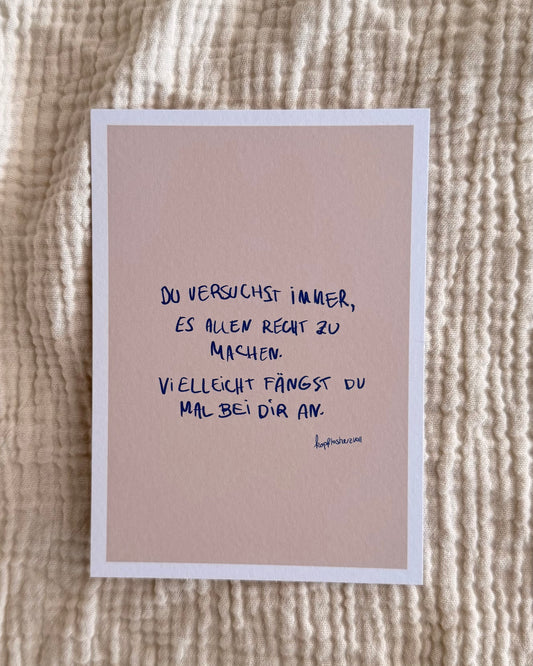 DU VERSUCHST IMMER,
ES ALLEN RECHT ZU
MACHEN.
VIELLEICHT FÄNGST DU
MAL BEI DIR AN.
kopflosherzvoll